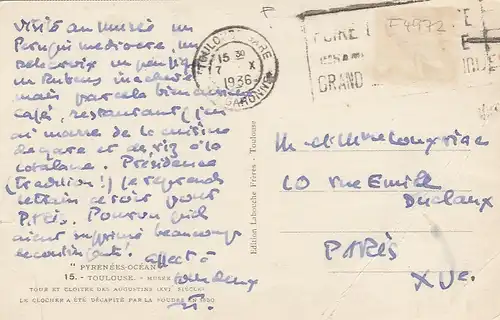 Visité au musées un
Perugin médiocre, un
Delacroix un peu
un Rubens inachevé
mais par cela bien
café, restaurant (j'en
ai marre de la cuisine
de gare et de riz à la
catalane. Présidence
(tradition!) je reprends
le train ce soir pour
Paris. Pourvu qu'ils
aient supprimé beaucoup
Affect t
"PYRÉNÉES-OCÉAN"
15. - TOULOUSE. - MUSÉE
TOUR ET CLOITRE DES AUGUSTINS (XVI. SIÈCLE)
LE CLOCHER A ÉTÉ DÉCAPITÉ PAR LA FOUDRE EN
Edition Labouche Frères - Toulouse
TOULOUSE GARE
15 30
7 X
1936
GARONNE
FOIRE
GRAND
F4972
M et Mme
10 rue Emile
Duclaux
PARIS
XVe.